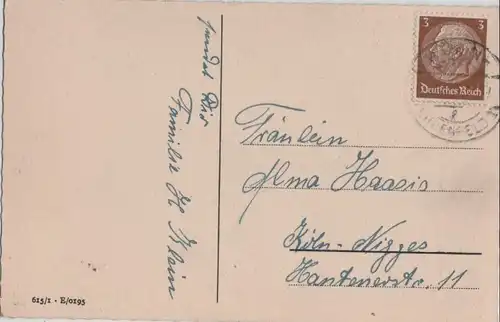 sendet Dir
Familie H Klein
Fräulein
Alma Haasis
Köln-Nippes
Xantenerstr. 11
3 3
Deutsches Reich
615/1 · E/0195